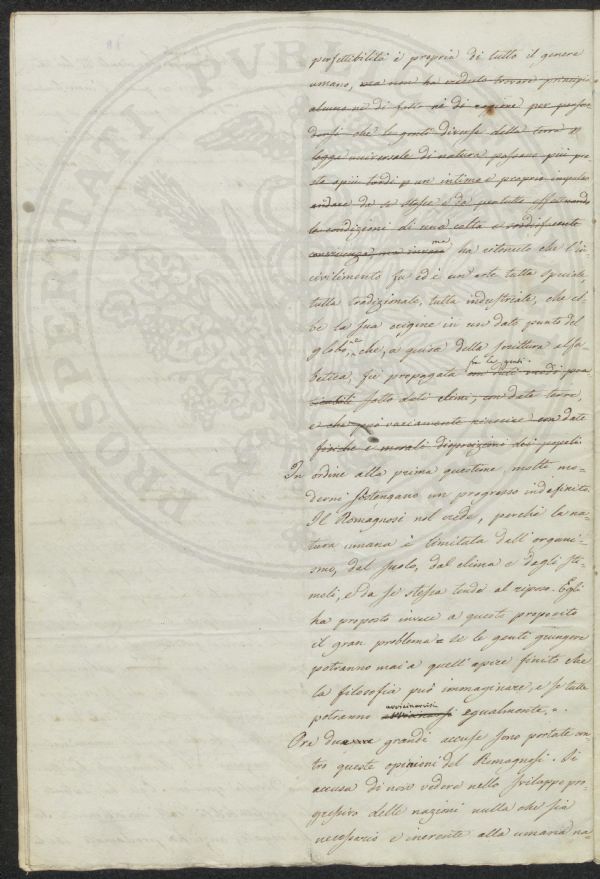 perfettibilità è propria di tutto il genere
umano, ma non ha creduto trovare principj
alcuno nè di fatto nè di ragione per persua-
dersi che le genti diverse della terra p
legge universale di natura passano più pre
sto o più tardi p un intimo e proprio impulso
andare da se stesse e da pertutto
le condizioni di una colta e soddisfacente
convivenza, ma invece ma ha ritenuto che l'in-
civilimento fu ed è un'arte tutta speciale,
tutta tradizionale, tutta industriale, che eb
be la sua origine in un dato punto del
globo, e che, a guisa della scrittura alfa
betica, fu propagata fra le genti.
sotto dati climi, con date terre,
e che può variamente riuscire con date
fisiche e morali disposizioni dei popoli.
In ordine alla prima questione molti mo-
derni sostengano un progresso indefinito.
Il Romagnosi nol crede, perchè la na-
tura umana è limitata dall'organi-
smo, dal suolo, dal clima e dagli sti-
moli, e da se stessa tende al riposo. Egli
ha proposto invece a questo proposito
il gran problema = se le genti giungere
potranno mai a quell'apice finito che
la filosofia può immaginare, e se tutte
potranno avvicinarvisi egualmente, =.
Ora due grandi accuse sono portate con
tro queste opinioni del Romagnosi. Si
accusa di non vedere nello sviluppo pro-
gressivo delle nazioni nulla che sia
necessario e inerente alla umana na-
PROSPERITATI PUBL